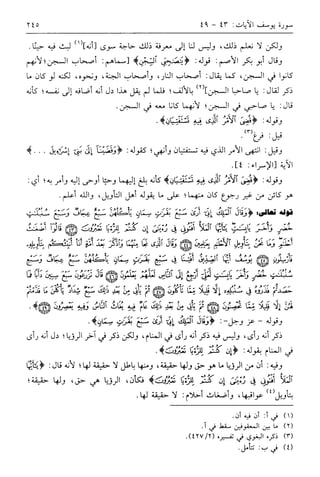 سورة يوسف الآيات: ٤٣ - ٤٩
٢٤٥
ولكن لا نعلم ذلك، وليس لنا إلى معرفة ذلك حاجة سوى [أنه](١) لبث فيه حينًا.
وقال أبو بكر الأصم: قوله: ﴿يَٰصَىٰحِبَيِ ٱلسِّجْنِ﴾ [سماهم: أصحاب السجن؛ لأنهم
كانوا في السجن، كما يقال: أصحاب النار، وأصحاب الجنة، ونحوه، لكنه لو كان ما
ذكر لقال: يا صاحبا السجن](٢) بالألف؛ فلما لم يقل هذا دل أنه أضافه إلى نفسه؛ كأنه
قال: يا صاحبي في السجن؛ لأنهما كانا معه في السجن.
وقوله: ﴿قُضِيَ ٱلْأَمْرُ ٱلَّذِي فِيهِ تَسْتَفْتِيَانِ﴾.
قيل: فرغ(٣).
وقيل: انتهى الأمر الذي فيه تستفتيان وأنهي؛ كقوله: ﴿وَقَضَيْنَآ إِلَىٰ بَنِيٓ إِسْرَٰٓءِيلَ . . .﴾
الآية [الإسراء: ٤].
وقوله: ﴿قُضِيَ ٱلْأَمْرُ ٱلَّذِي فِيهِ تَسْتَفْتِيَانِ﴾ كأنه بلغ إليهما وحيًا أوحي إليه وأمر به؛ أي:
هو كائن من غير رجوع كان منهما؛ على ما يقوله أهل التأويل، والله أعلم.
قوله تعالى: ﴿وَقَالَ ٱلْمَلِكُ إِنِّيٓ أَرَىٰ سَبْعَ بَقَرَٰتٍ سِمَانٍ يَأْكُلُهُنَّ سَبْعٌ عِجَافٌ وَسَبْعَ سُنۢبُلَٰتٍ
خُضْرٍ وَأُخَرَ يَابِسَٰتٍ يَٰٓأَيُّهَا ٱلْمَلَأُ أَفْتُونِي فِي رُءْيَٰيَ إِن كُنتُمْ لِلرُّءْيَا تَعْبُرُونَ قَالُوٓا۟ أَضْغَٰثُ
أَحْلَٰمٍ وَمَا نَحْنُ بِتَأْوِيلِ ٱلْأَحْلَٰمِ بِعَٰلِمِينَ وَقَالَ ٱلَّذِي نَجَا مِنْهُمَا وَٱدَّكَرَ بَعْدَ أُمَّةٍ أَنَا۠ أُنَبِّئُكُم بِتَأْوِيلِهِۦ
فَأَرْسِلُونِ يُوسُفُ أَيُّهَا ٱلصِّدِّيقُ أَفْتِنَا فِي سَبْعِ بَقَرَٰتٍ سِمَانٍ يَأْكُلُهُنَّ سَبْعٌ عِجَافٌ وَسَبْعِ
سُنۢبُلَٰتٍ خُضْرٍ وَأُخَرَ يَابِسَٰتٍ لَّعَلِّيٓ أَرْجِعُ إِلَى ٱلنَّاسِ لَعَلَّهُمْ يَعْلَمُونَ قَالَ تَزْرَعُونَ سَبْعَ سِنِينَ دَأَبًا فَمَا
حَصَدتُّمْ فَذَرُوهُ فِي سُنۢبُلِهِۦٓ إِلَّا قَلِيلًا مِّمَّا تَأْكُلُونَ ثُمَّ يَأْتِي مِنۢ بَعْدِ ذَٰلِكَ سَبْعٌ شِدَادٌ يَأْكُلْنَ مَا قَدَّمْتُمْ
لَهُنَّ إِلَّا قَلِيلًا مِّمَّا تُحْصِنُونَ ثُمَّ يَأْتِي مِنۢ بَعْدِ ذَٰلِكَ عَامٌ فِيهِ يُغَاثُ ٱلنَّاسُ وَفِيهِ يَعْصِرُونَ﴾.
وقوله - عز وجل -: ﴿وَقَالَ ٱلْمَلِكُ إِنِّيٓ أَرَىٰ سَبْعَ بَقَرَٰتٍ سِمَانٍ﴾.
ذكر أنه رأى، وليس فيه ذكر أنه رأى في المنام، ولكن ذكر في آخر الرؤيا؛ دل أنه رأى
في المنام بقوله: ﴿إِن كُنتُمْ لِلرُّءْيَا تَعْبُرُونَ﴾.
وفيه: أن من الرؤيا ما هو حق ولها حقيقة، ومنها باطل لا حقيقة لها؛ لأنه قال: ﴿يَٰٓأَيُّهَا
ٱلْمَلَأُ أَفْتُونِي فِي رُءْيَٰيَ إِن كُنتُمْ لِلرُّءْيَا تَعْبُرُونَ﴾ فكأن، الرؤيا هي حق، ولها حقيقة؛
بتأويل(٤) عواقبها، وأضغاث أحلام: لا حقيقة لها.
(١) في أ: أن فيه أن.
(٢) ما بين المعقوفين سقط في أ.
(٣) ذكره البغوي في تفسيره (٤٢٧/٢).
(٤) في ب: تتأمل.